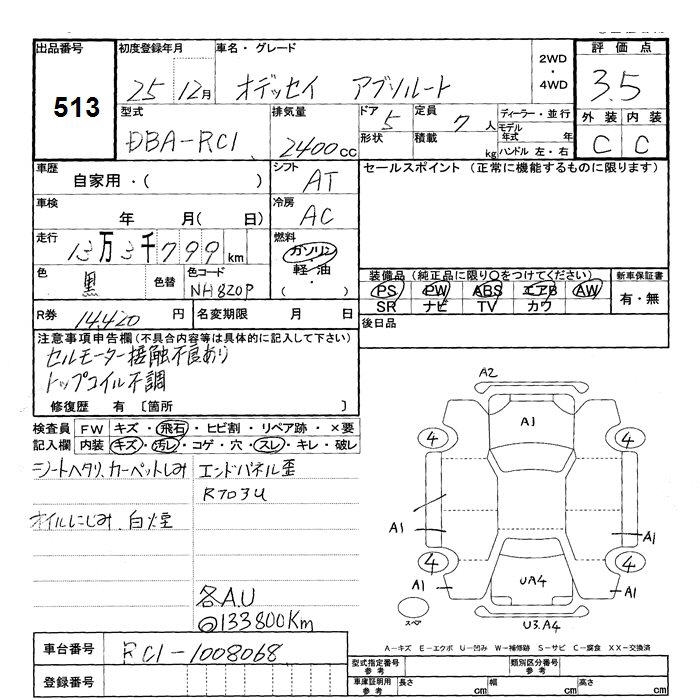 出品番号 初度登録年月 車名・グレード 2WD・4WD 評価点
513 25 12月 オデッセイ アブソルート 3.5
型式 排気量 ドア 5 定員 7人 ディーラー・並行 外装 内装
DBA-RC1 2400cc 形状 積載 kg モデル年式 年 ハンドル 左・右 C C
車歴 自家用・( ) シフト AT セールスポイント (正常に機能するものに限ります)
車検 年 月( 日) 冷房 AC
走行 13万3千799km 燃料 ガソリン・軽油・( )
色 黒 色替 色コード NH820P
装備品 (純正品に限り○をつけてください) 新車保証書
PS PW ABS エアB AW 有・無
SR ナビ TV カワ
R券 14,420円 名変期限 月 日 後日品
注意事項申告欄 (不具合内容等は具体的に記入して下さい)
セルモーター接触不良あり
トップコイル不調
修復歴 有 〔箇所 〕
検査員 FW キズ・飛石・ヒビ割・リペア跡・×要
記入欄 内装 キズ・汚レ・コゲ・穴・スレ・キレ・破レ
シートヘタリ、カーペットしみ エンドパネル歪
オイルにじみ、白煙
各A.U
◎133800Km
A2
A1
4 4
A1 A1
4 4
A1 A1
UA4
スペ
U3.A4
A-キズ E-エクボ U-凹み W-補修跡 S-サビ C-腐食 XX-交換済
車台番号 RC1-1008068
登録番号
型式指定番号 参考 類別区分番号 参考
車庫証明用 参考 長さ cm 幅 cm 高さ cm